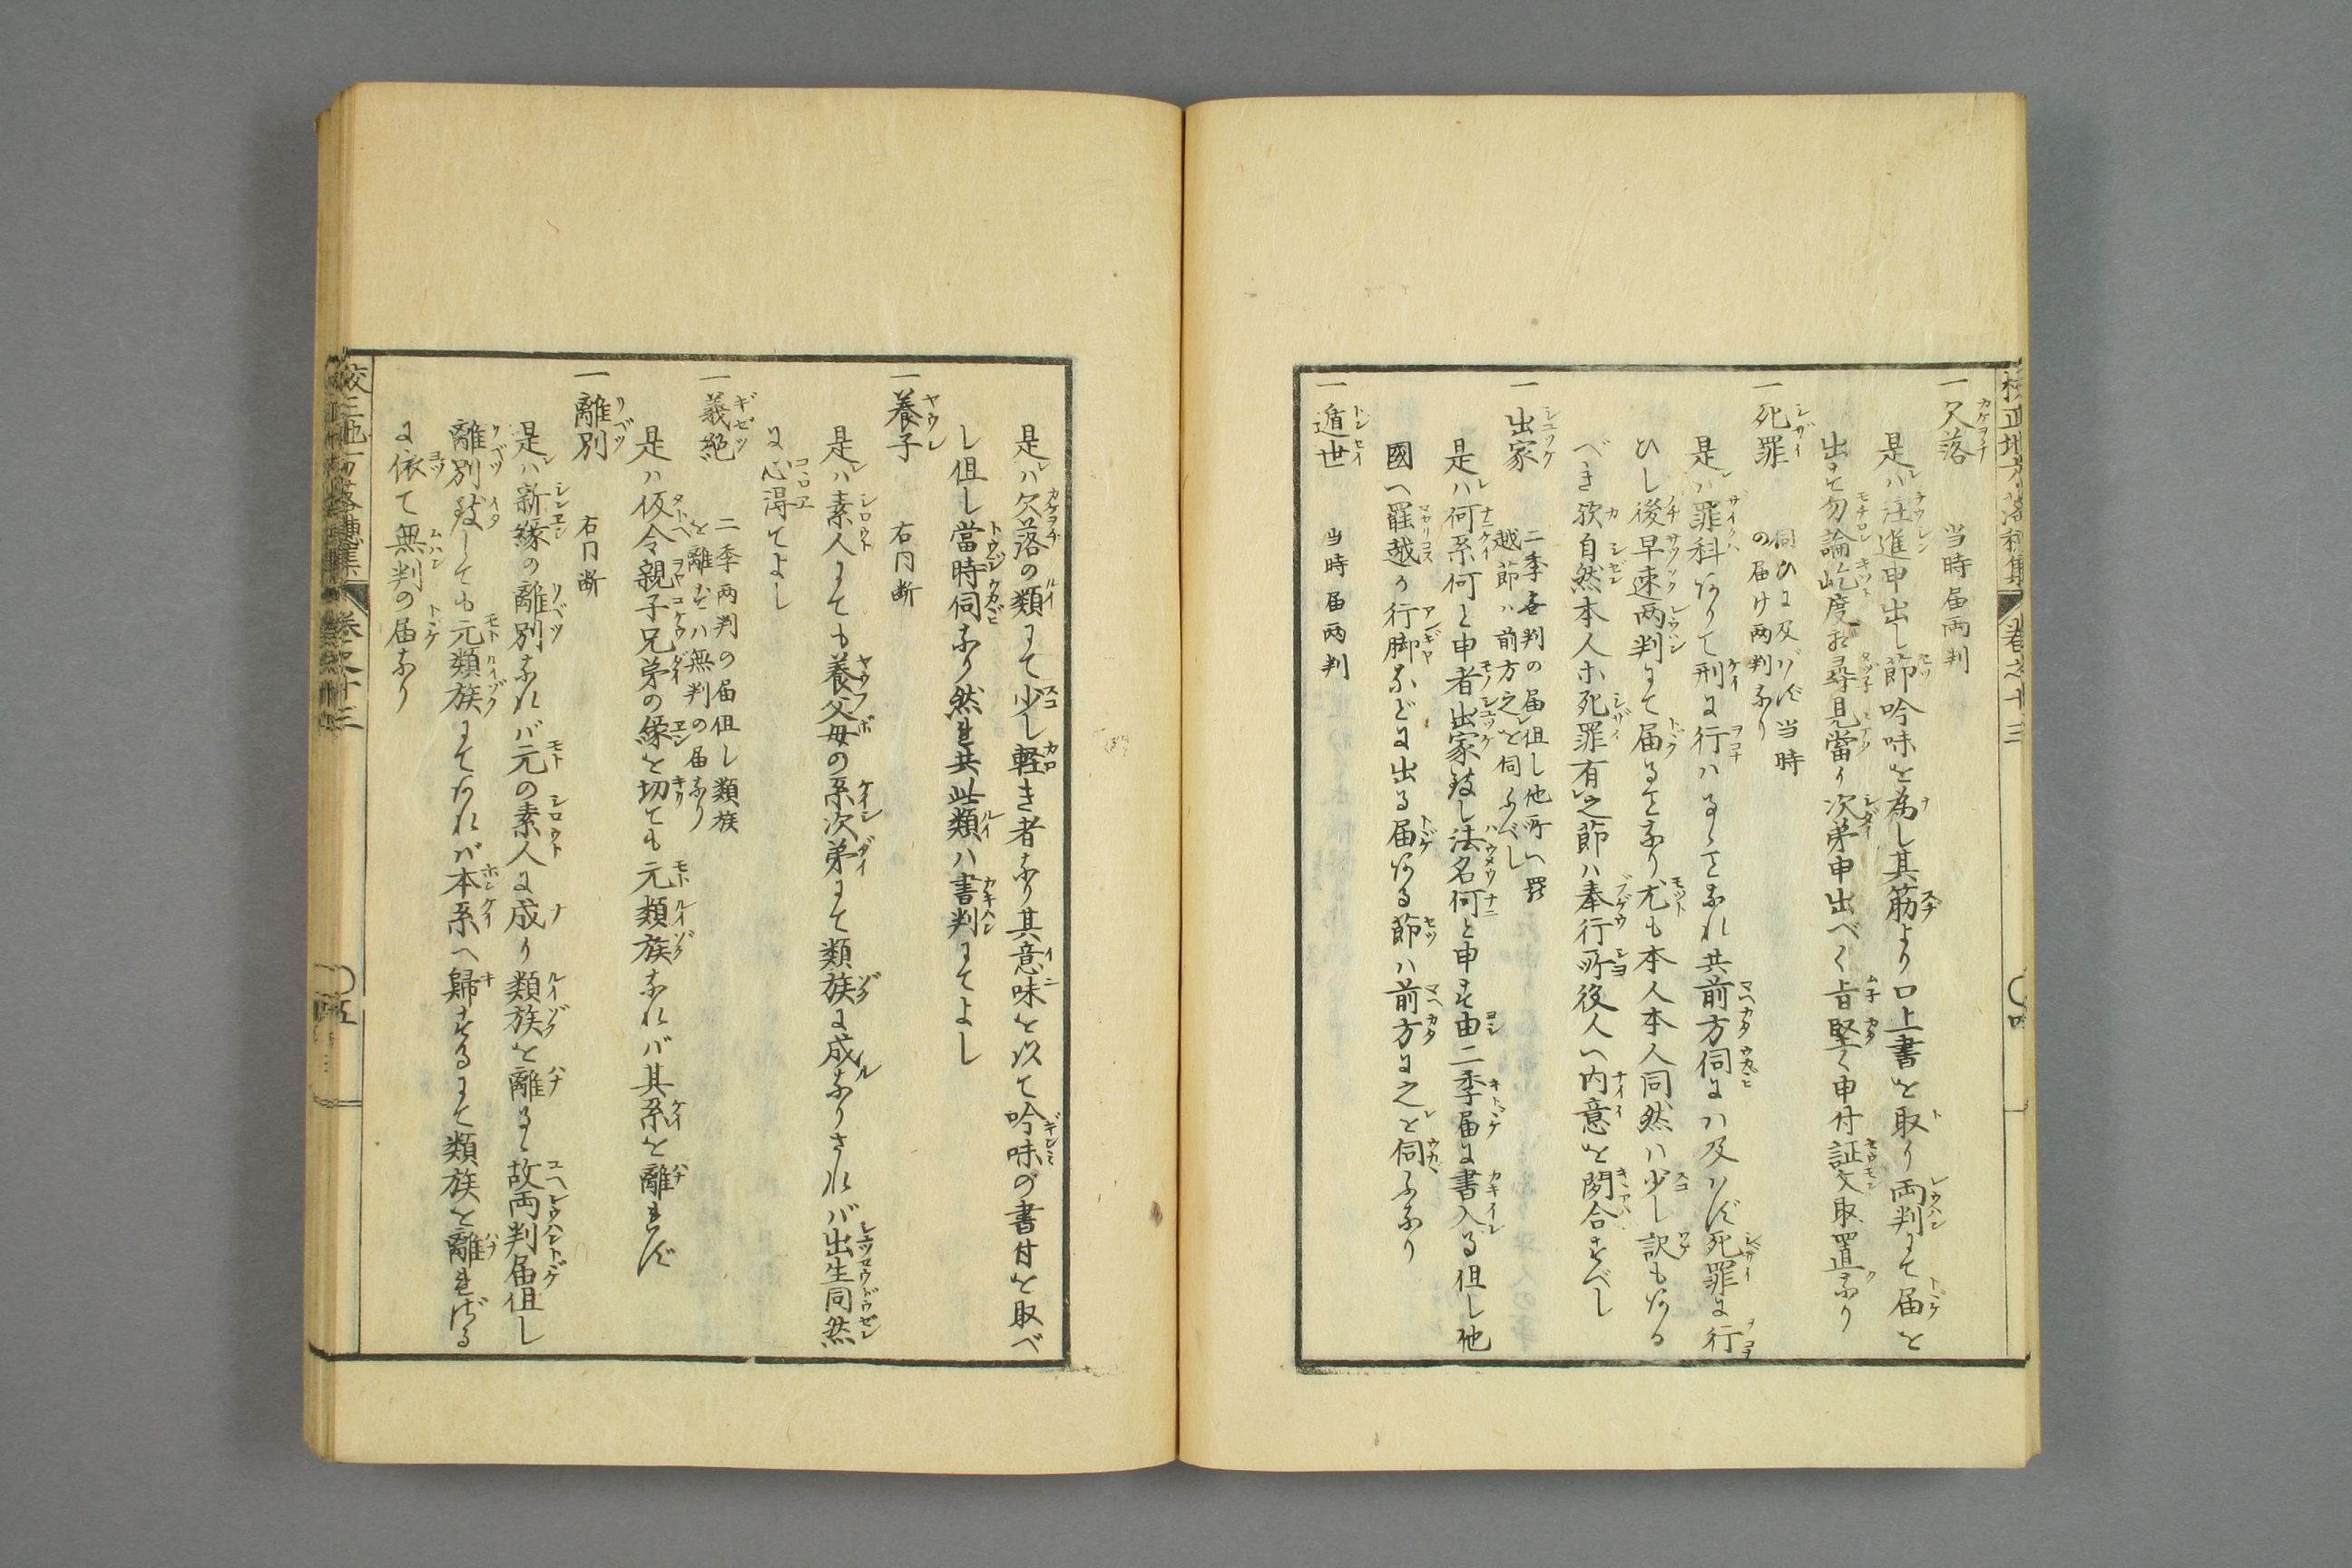 校正地方落穂集 巻之十三 ○四
一欠落 当時届両判
是ハ注進申出し節吟味を為し其筋より口上書を取り両判にて届を
出すて勿論屹度相尋見當り次第申出べく旨堅く申付証文取置なり
一死罪 伺ひに及バず当時
の届け両判なり
是ハ罪科ありて刑に行ハるゝことなれ共前方伺にハ及ハず死罪に行
ひし後早速両判にて届ることなり尤も本人本人同然ハ少し訳もある
べき歟自然本人亦死罪有之節ハ奉行所役人へ内意を聞合すべし
一出家 二季無判の届但し他所へ罷
越節ハ前方之を伺ふべし
是ハ何系何と申者出家致し法名何と申す由二季届に書入る但し他
國へ罷越か行脚などに出る届ある節ハ前方に之を伺ふなり
一遁世 当時届両判
是ハ欠落の類にて少し軽き者なり其意味を以て吟味の書付を取べ
し但し當時伺なり然れ共此類ハ書判にてよし
一養子 右同断
是ハ素人にても養父母の系次第にて類族に成なりされバ出生同然
に心得てよし
一義絶 二季両判の届但し類族
を離れずハ無判の届なり
是ハ仮令親子兄弟の縁を切ても元類族なれバ其系を離れず
一離別 右同断
是ハ新縁の離別なれバ元の素人に成り類族を離るゝ故両判届但し
離別致しても元類族にてあれバ本系へ歸するにて類族を離れざる
に依て無判の届なり
校正地方落穂集 巻之十三 ○五